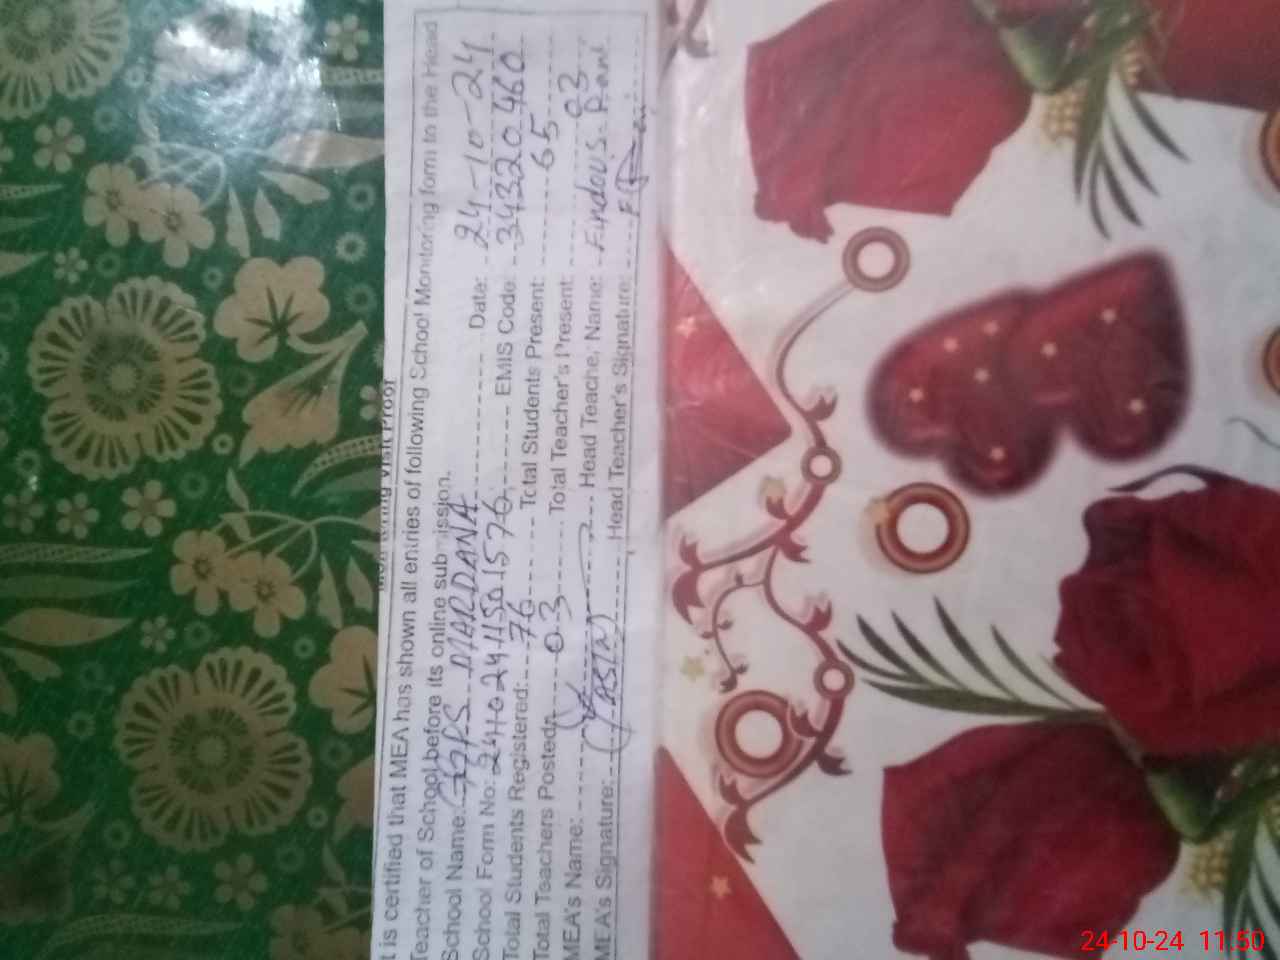 Monitoring Visit Proof
t is certified that MEA has shown all entries of following School Monitoring form to the Head
Teacher of School before its online submission.
School Name: GPS MARDANA Date: 24-10-24
School Form No: 24102411501576 EMIS Code: 34320460
Total Students Registered: 76 Total Students Present: 65
Total Teachers Posted: 03 Total Teacher's Present: 03
MEA's Name: Head Teacher Name:
MEA's Signature: Head Teacher's Signature:
24-10-24 11:50